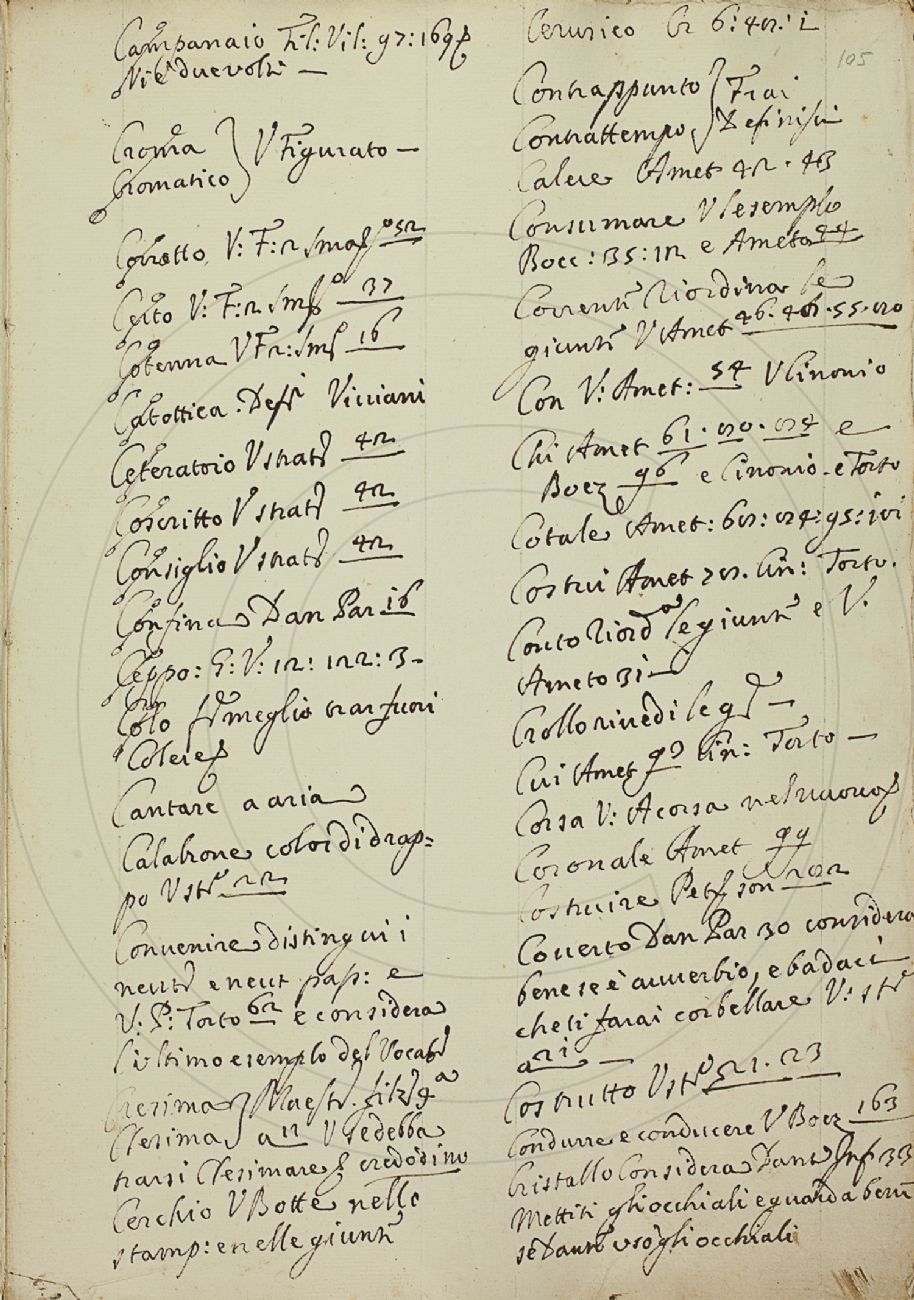 Campanaio Fil: Vil: 97: 169
Vi è due volte —
Croma
Cromatico } V Figurato —
Coretto, V: F: 2 52
Certo V: F: 2 37
Cotenna V F2: 16
Catottica. Def Viviani
Ceteratoio V strat 42
Coscritto V strat 42
Consiglio V strat 42
Confina Dan Par 16
Ceppo: G: V: 12: 122: 3-
Colo meglio trar fuori
Colere
Cantare a aria
Calabrone color di drap=
po V str 22
Convenire distingui i
neut e neut pass: e
V: P: Torto 62 e considera
l'ultimo esemplo del Vocab
Cresima } Maestr.
Clesima } a 11 V se debba
trarsi Clesimare credo di no
Cerchio V Botte nello
stamp: e nelle giunt
Cerusico Cr 6: 42: 1
105
Contrappunto } Frai
Contrattempo, } Definisci
Calere Amet 42. 43
Consumare V l'esemplo
Bocc: 35: 12 e Ameto 44
Corrent Riordina le
giunt V Amet 46. 55.
Con V: Amet: 54 V Cinonio
Chi Amet 61. e
Boez 96 e Cinonio e Torto
Cotale Amet: 95: 101
Costui Amet Cin: Torto.
Conto Riord le giunt e V.
Ameto 31 —
Crollo rivedi le g —
Cui Amet 97 Cin: Torto —
Corsa V: Acorsa nel nuovo
Coronale Amet 99
Costruire Pet son 202
Coverto Dan Par 30 considera
bene se è avverbio, e badaci
che ti farai corbellare V: str
a 21 —
Costrutto V str 21. 23
Condurre e conducere V Boez 163
Cristallo Considera Dant Inf 33
Mettiti gli occhiali e guarda ben
se Dante usò gli occhiali